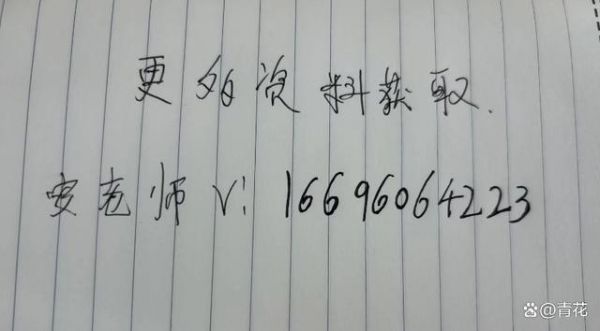 更多资料获取.
安老师 V: 16696064223
@青花